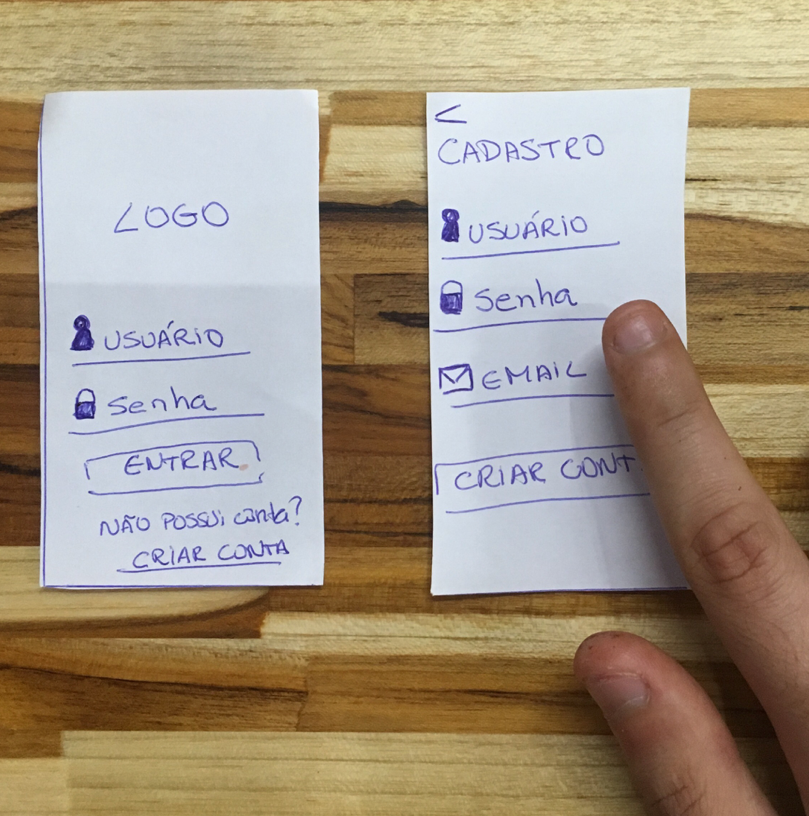 LOGO
USUÁRIO
senha
ENTRAR
NÃO POSSUI conta?
CRIAR CONTA
<
CADASTRO
USUÁRIO
senha
EMAIL
CRIAR CONT